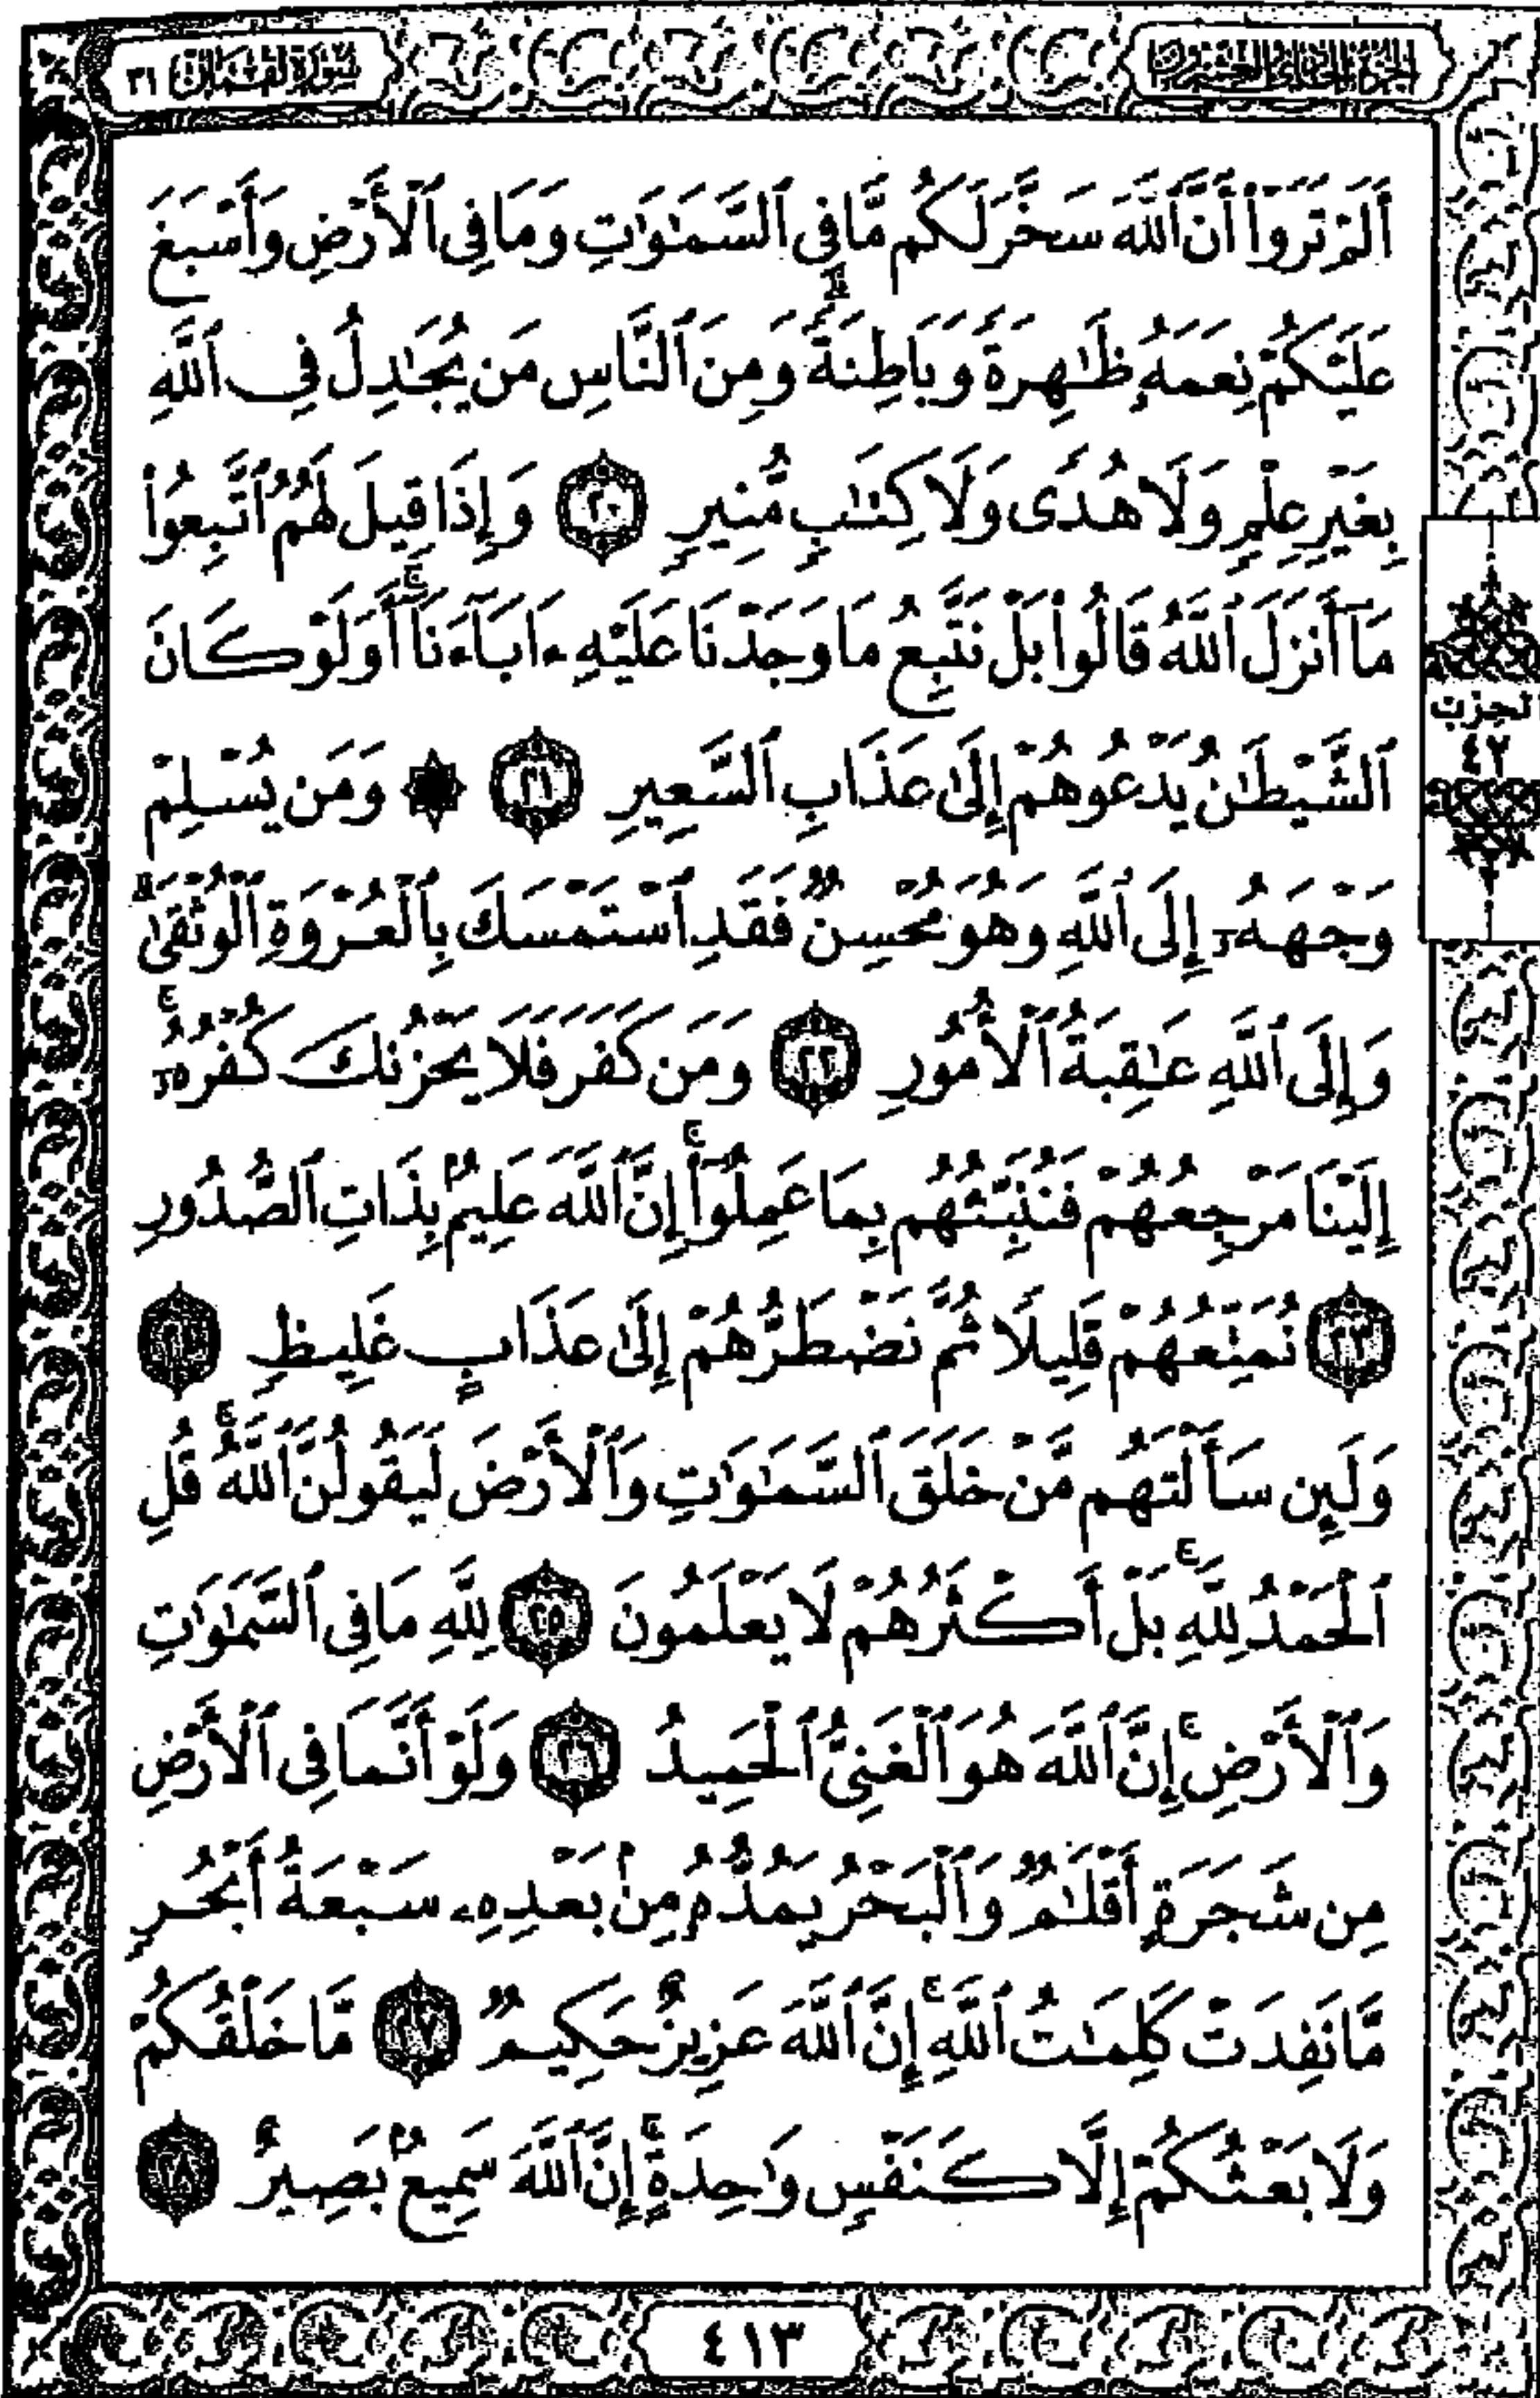 الجزء الحادي والعشرون
سورة لقمان ٣١
أَلَمْ تَرَوْا۟ أَنَّ ٱللَّهَ سَخَّرَ لَكُم مَّا فِى ٱلسَّمَٰوَٰتِ وَمَا فِى ٱلْأَرْضِ وَأَسْبَغَ
عَلَيْكُمْ نِعَمَهُۥ ظَٰهِرَةً وَبَاطِنَةً ۗ وَمِنَ ٱلنَّاسِ مَن يُجَٰدِلُ فِى ٱللَّهِ
بِغَيْرِ عِلْمٍ وَلَا هُدًى وَلَا كِتَٰبٍ مُّنِيرٍ ٢٠ وَإِذَا قِيلَ لَهُمُ ٱتَّبِعُوا۟
مَآ أَنزَلَ ٱللَّهُ قَالُوا۟ بَلْ نَتَّبِعُ مَا وَجَدْنَا عَلَيْهِ ءَابَآءَنَآ ۚ أَوَلَوْ كَانَ
ٱلشَّيْطَٰنُ يَدْعُوهُمْ إِلَىٰ عَذَابِ ٱلسَّعِيرِ ٢١ ۞ وَمَن يُسْلِمْ
وَجْهَهُۥٓ إِلَى ٱللَّهِ وَهُوَ مُحْسِنٌ فَقَدِ ٱسْتَمْسَكَ بِٱلْعُرْوَةِ ٱلْوُثْقَىٰ ۗ
وَإِلَى ٱللَّهِ عَٰقِبَةُ ٱلْأُمُورِ ٢٢ وَمَن كَفَرَ فَلَا يَحْزُنكَ كُفْرُهُۥٓ ۚ
إِلَيْنَا مَرْجِعُهُمْ فَنُنَبِّئُهُم بِمَا عَمِلُوٓا۟ ۚ إِنَّ ٱللَّهَ عَلِيمٌۢ بِذَاتِ ٱلصُّدُورِ
٢٣ نُمَتِّعُهُمْ قَلِيلًا ثُمَّ نَضْطَرُّهُمْ إِلَىٰ عَذَابٍ غَلِيظٍ ٢٤
وَلَئِن سَأَلْتَهُم مَّنْ خَلَقَ ٱلسَّمَٰوَٰتِ وَٱلْأَرْضَ لَيَقُولُنَّ ٱللَّهُ ۚ قُلِ
ٱلْحَمْدُ لِلَّهِ ۚ بَلْ أَكْثَرُهُمْ لَا يَعْلَمُونَ ٢٥ لِلَّهِ مَا فِى ٱلسَّمَٰوَٰتِ
وَٱلْأَرْضِ ۚ إِنَّ ٱللَّهَ هُوَ ٱلْغَنِىُّ ٱلْحَمِيدُ ٢٦ وَلَوْ أَنَّمَا فِى ٱلْأَرْضِ
مِن شَجَرَةٍ أَقْلَٰمٌ وَٱلْبَحْرُ يَمُدُّهُۥ مِنۢ بَعْدِهِۦ سَبْعَةُ أَبْحُرٍ
مَّا نَفِدَتْ كَلِمَٰتُ ٱللَّهِ ۚ إِنَّ ٱللَّهَ عَزِيزٌ حَكِيمٌ ٢٧ مَّا خَلْقُكُمْ
وَلَا بَعْثُكُمْ إِلَّا كَنَفْسٍ وَٰحِدَةٍ ۗ إِنَّ ٱللَّهَ سَمِيعٌۢ بَصِيرٌ ٢٨
الحزب
٤٢
٤١٣